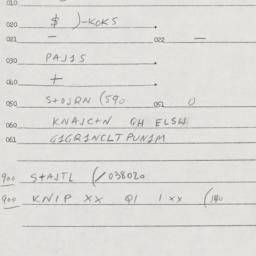 010
020 $ )-KOK5 .
021 — 022 —
030 PAJ15 .
040 + .
050 S+OJRN (590 051 0
060 KNAJC+N GH ELSW
061 G1GR1NCLTPUN1M
900 S+AJTL (/038020
900 KN1P XX Q1 1 XX (140